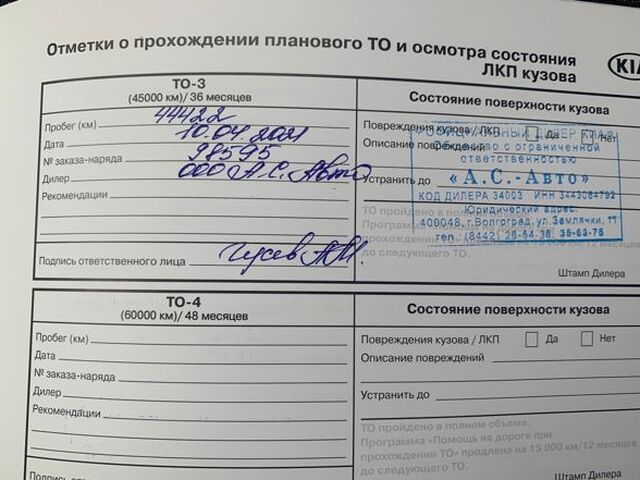 Отметки о прохождении планового ТО и осмотра состояния
ЛКП кузова
KIA
ТО-3
(45000 км)/ 36 месяцев
Пробег (км) 44422
Дата 10.04.2021
№ заказа-наряда 98595
Дилер ООО А.С. Авто
Рекомендации
Подпись ответственного лица Гусев А.М.
Состояние поверхности кузова
Повреждения кузова / ЛКП Да Нет
Описание повреждений
Устранить до
ТО пройдено в полном
Программа
прохождении ТО 15 000 км/12 месяцев
до следующего ТО.
Штамп Дилера
ОФИЦИАЛЬНЫЙ ДИЛЕР КИА
Общество с ограниченной
ответственностью
« А.С.-Авто»
КОД ДИЛЕРА 34003 ИНН 3443064792
Юридический адрес:
400048, г.Волгоград, ул.Землячки, 11
тел. (8442) 26-54-36, 35-63-75
ТО-4
(60000 км)/ 48 месяцев
Пробег (км)
Дата
№ заказа-наряда
Дилер
Рекомендации
Подпись ответственного лица
Состояние поверхности кузова
Повреждения кузова / ЛКП Да Нет
Описание повреждений
Устранить до
ТО пройдено в полном объеме.
Программа «Помощь на дороге при
прохождении ТО» продлена на 15 000 км/12 месяцев
до следующего ТО.
Штамп Дилера